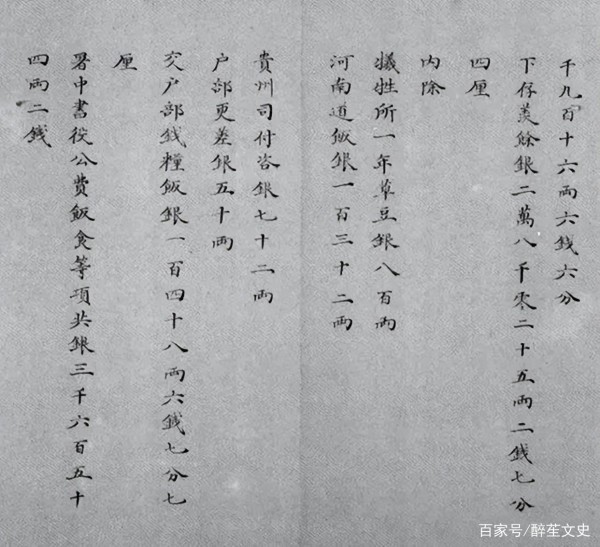 千九百十六兩六錢六分
下存羡餘銀二萬八千零二十五兩二錢七分
四厘
內除
犧牲所一年草豆銀八百兩
河南道飯銀一百三十二兩
貴州司付咨銀七十二兩
户部更差銀五十兩
交户部錢糧飯銀一百四十八兩六錢七分七
厘
署中書役公費飯食等項共銀三千六百五十
四兩二錢
百家号/醉茫文史